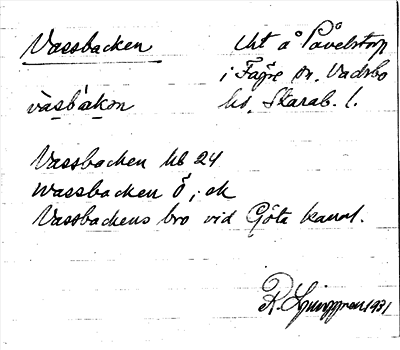 Vassbacken
Lht å Påvelstorp
i Fägre sn. Vadsbo
hd, Skarab. l.
vàsbakən
Vassbacken hb 24
Wassbacken Ö, ek
Vassbackens bro vid Göta kanal.
R. Ljunggren 1931